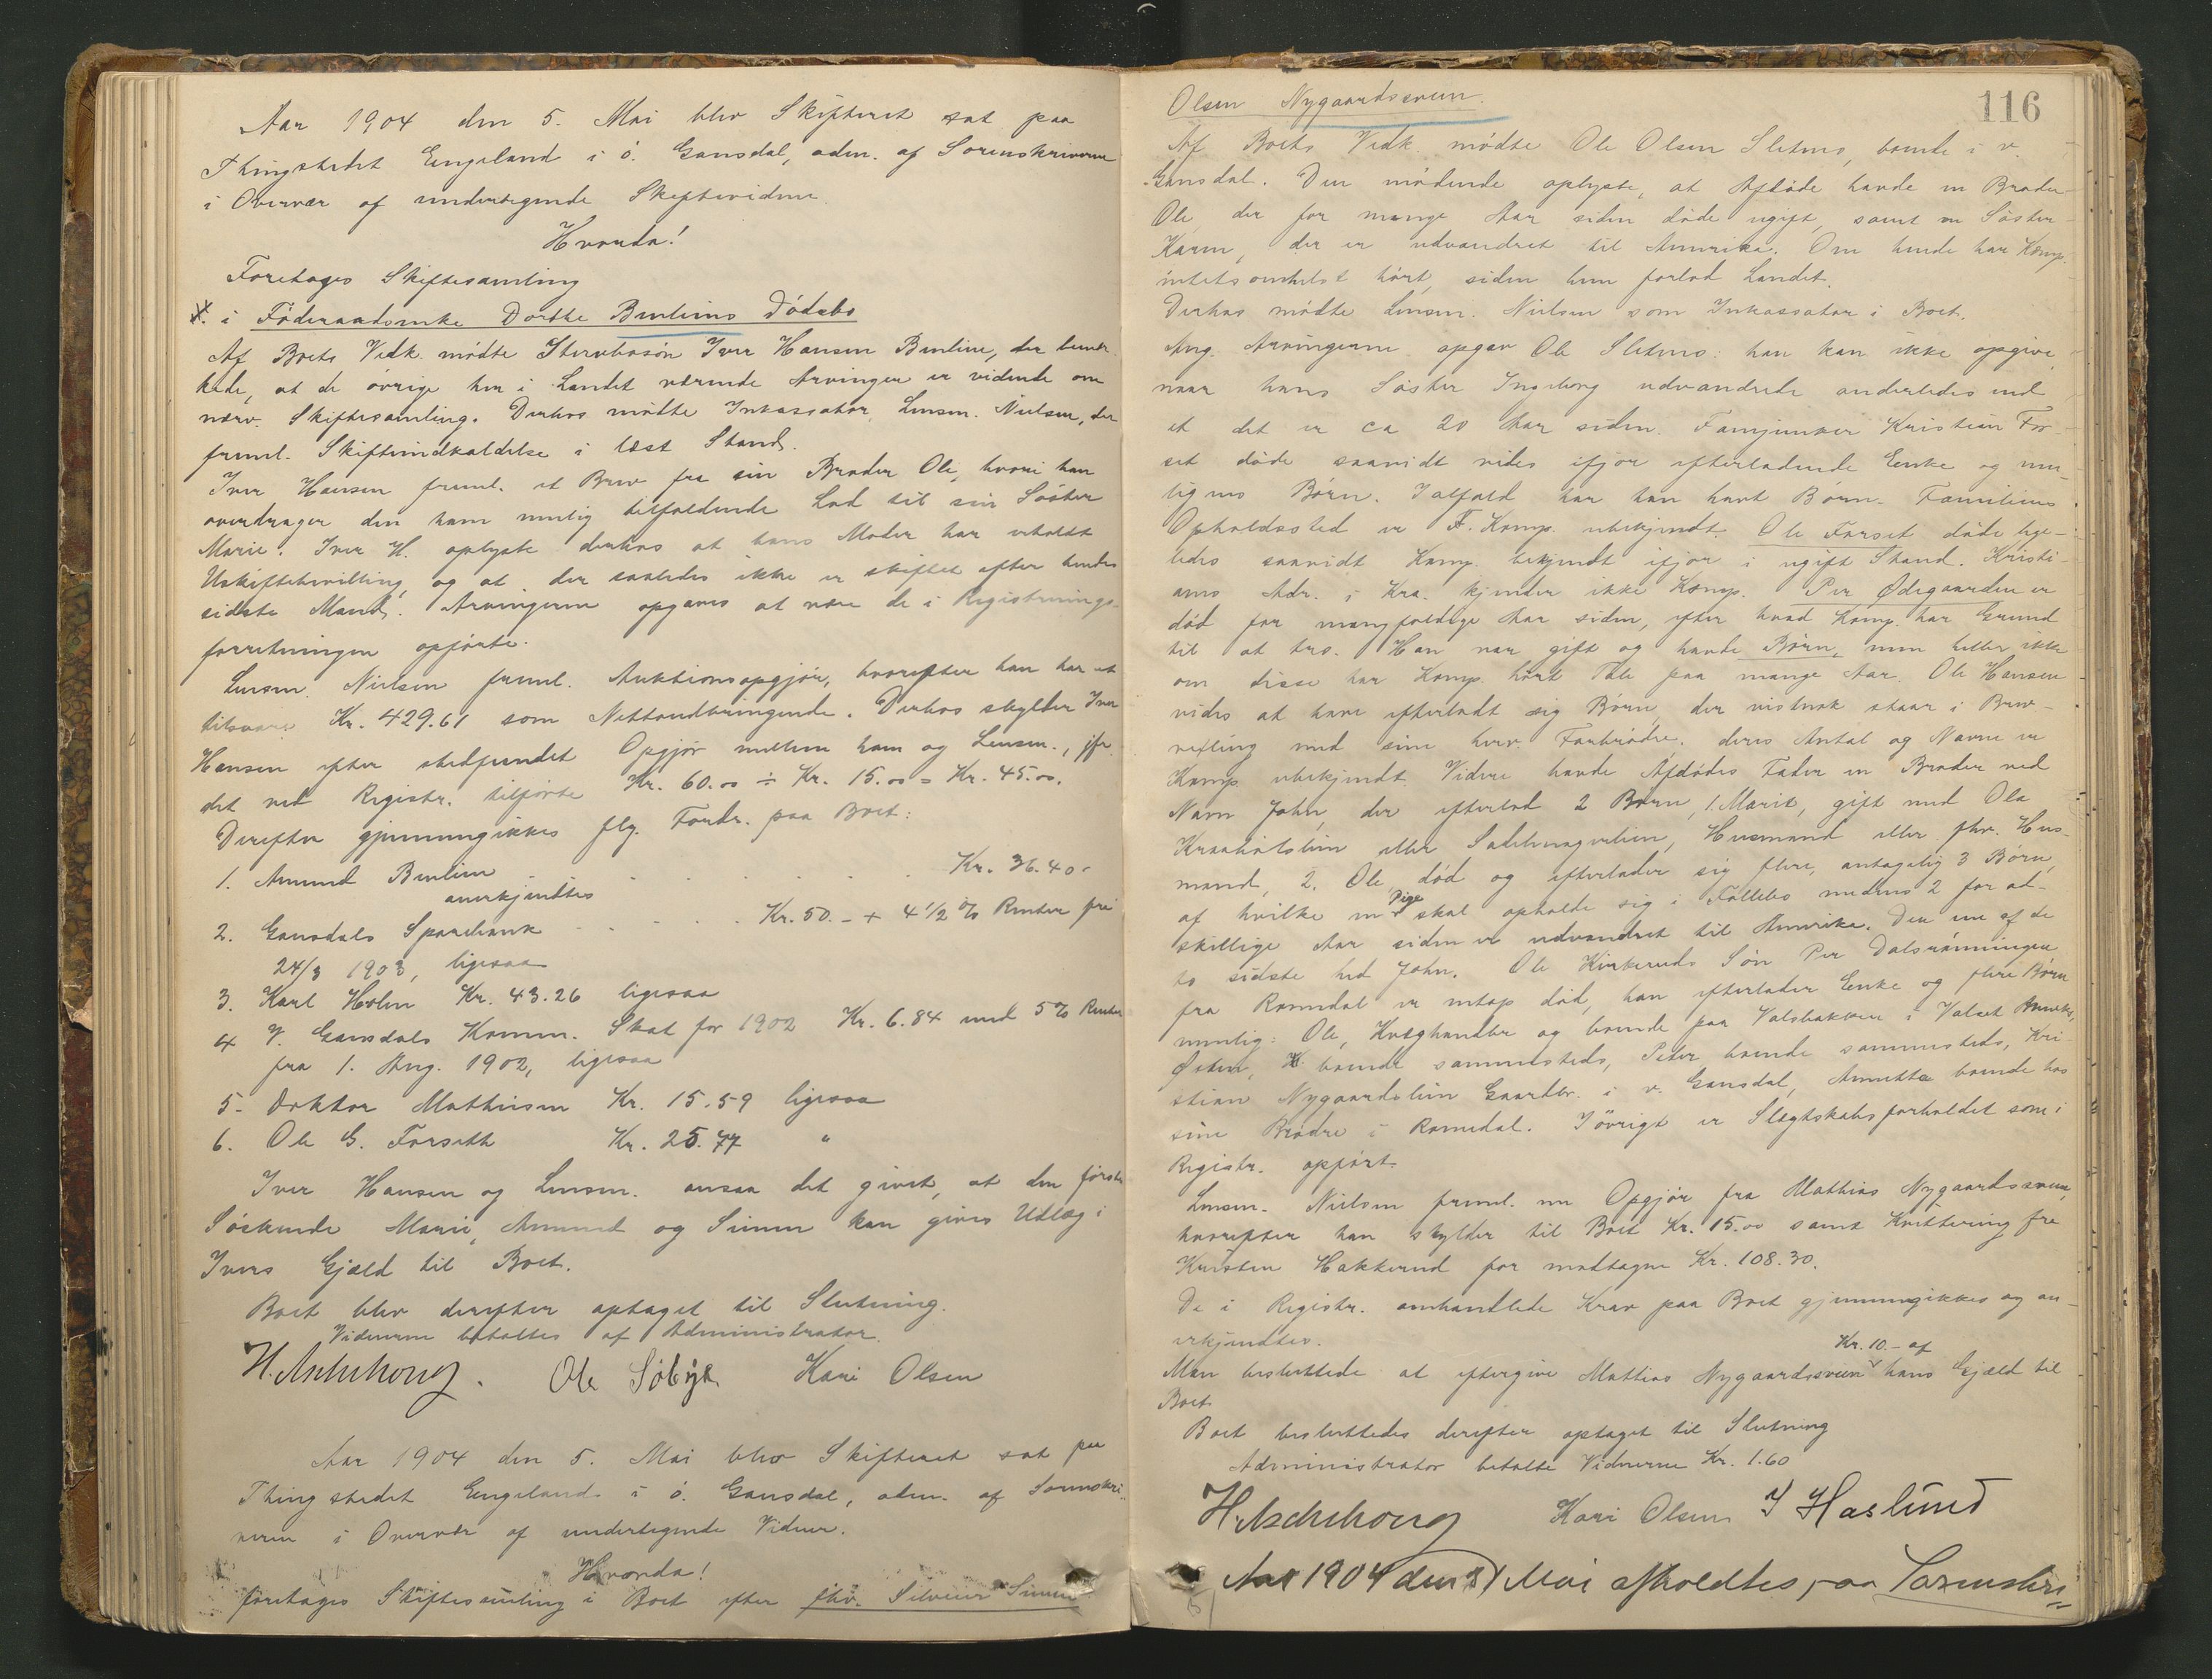 Aar 1904 den 5. Mai blev Skifteret sat paa
Thingstedet Engeland i ö. Gausdal, adm. af Sorenskriveren
i Overvær af undertegnede Skiftevidner.
Hvorda!
Foretoges Skiftesamling
i Föderaadsenke Dorthe Benliens Dödsbo
Af Boets Vedk. mödte Stervbosön Iver Hansen Benlien, der bemær-
kede, at de övrige her i Landet værende Arvinger er vidende om
nærv. Skiftesamling. Derhos mödte Inkassator, Lensm. Nielsen, der
freml. Skifteindkaldelse i læst Stand.
Iver Hansen freml. et Brev fra sin Broder Ole, hvori han
overdrager den ham mulig tilfaldende Lod til sin Söster
Marie. Iver H. oplyste derhos at hans Moder har erholdt
Uskiftebevilling, og at der saaledes ikke er skiftet efter hendes
sidste Mand. Arvingerne opgaves at være de i Registrerings-
forretningen opförte.
Lensm. Nielsen freml. Auktionsopgjör, hvorefter han har at
tilsvare Kr. 429.61 som Nettoudbringende. Derhos skylder Iver
Hansen efter stedfundet Opgjör mellem ham og Lensm., jfr.
det ved Registr. tilförte Kr. 60.00 ÷ Kr. 15.00 = Kr. 45.00.
Derefter gjennemgikkes flg. Fordr. paa Boet:
1. Amund Benlien . . . . . . Kr. 36.40.
anerkjendtes
2. Gausdals Sparebank . . . Kr. 50.- + 4 1/2 % Renter fra
24/3 1903, ligesaa
3. Karl Holm Kr. 43.26 ligesaa
4 V. Gausdals Komm. Skat for 1902 Kr. 6.84 med 5% Renter
fra 1. Aug. 1902, ligesaa
5. Doktor Mathiesen Kr. 15.59 ligesaa
6. Ole G. Forseth Kr. 25.77 "
Iver Hansen og Lensm. ansaa det givet, at den förstes
Söskende Marie, Amund og Simen kan gives Udlæg i
Ivers Gjæld til Boet.
Boet blev derefter optaget til Slutning.
Vidnerne betaltes af Administrator.
H. Aschehoug. Ole Söbye Kari Olsen
Aar 1904 den 5. Mai blev Skifteret sat paa
Thingstedet Engeland i ö. Gausdal, adm. af Sorenskri-
veren i Overvær af undertegnede Vidner.
Hvorda!
foretoges Skiftesamling i Boet efter fhv. Simen
116
Olsen Nygaardssveen.
Af Boets Vedk. mödte Ole Olsen Sletmo, boende i v.
Gausdal. Den mödende oplyste, at Afdöde havde en Broder
Ole, der for mange Aar siden döde ugift, samt en Söster
Karen, der er udvandret til Amerika. Om hende har Komp.
intetsomhelst hört, siden hun forlod Landet.
Derhos mödte Lensm. Nielsen som Inkassator i Boet.
Ang. Arvingerne opgav Ole Sletmo: han kan ikke opgive,
naar hans Söster Ingeborg udvandrede anderledes end
at det er ca 20 Aar siden. Fanejunker Kristian For-
set döde saavidt vides ifjor efterladende Enke og mu-
ligens Börn. Ialfald har han havt Börn. Familiens
Opholdssted er Komp. ubekjendt. Ole Forset döde lige-
ledes saavidt Komp. bekjendt ifjor i ugift Stand. Kristi-
ans Adr. i Kra. kjender ikke Komp. Per Ødegaarden er
död for mangfoldige Aar siden, efter hvad Komp. har Grund
til at tro. Han var gift og havde Börn, men heller ikke
om disse har Komp. hört Tale paa mange Aar. Ole Hansen
vides at have efterladt sig Börn, der vistnok staar i Brev-
vexling med sine herv. Farbrödre, deres Antal og Navne er
Komp. ubekjendt. Videre havde Afdödes Fader en Broder ved
Navn John, der efterlod 2 Börn, 1. Marit, gift med Ola
eller Husmand eller fhv. Hus-
mand, 2. Ole, död og efterlader sig flere, antagelig 3 Börn,
af hvilke en Pige skal opholde sig i Follebo medens 2 for ad-
skillige Aar siden er udvandret til Amerika. Den ene af de
to sidste hed John. Ole Sön Per Dalsrönningen
fra Romedal er nettop död, han efterlader Enke og flere Börn
nemlig: Ole, Kræghandler og boende paa Valsbakken i Valset
boende sammesteds, Peter boende sammesteds, Kri-
stian Nygaardslien Gaardbr. i v. Gausdal, Annette boende hos
sine Brödre i Romedal. Iövrigt er Slægtskabsforholdet som i
Registr. opfört.
Lensm. Nielsen freml. en Opgjör fra Mathias Nygaardssveen,
hvorefter han skylder til Boet Kr. 15.00 samt Kvittering fra
Kristen Hakkerud for modtagne Kr. 108.30.
De i Registr. omhandlede Krav paa Boet gjennemgikkes og an-
erkjendtes.
Man besluttede at eftergive Mathias Nygaardssveen Kr. 10.- af hans Gjæld til
Boet
Boet besluttedes derefter optaget til Slutning
Administrator betalte Vidnerne Kr. 1.60
H. Aschehoug Kari Olsen I Haslund
Aar 1904 den Mai afholdtes paa Sorenskri=